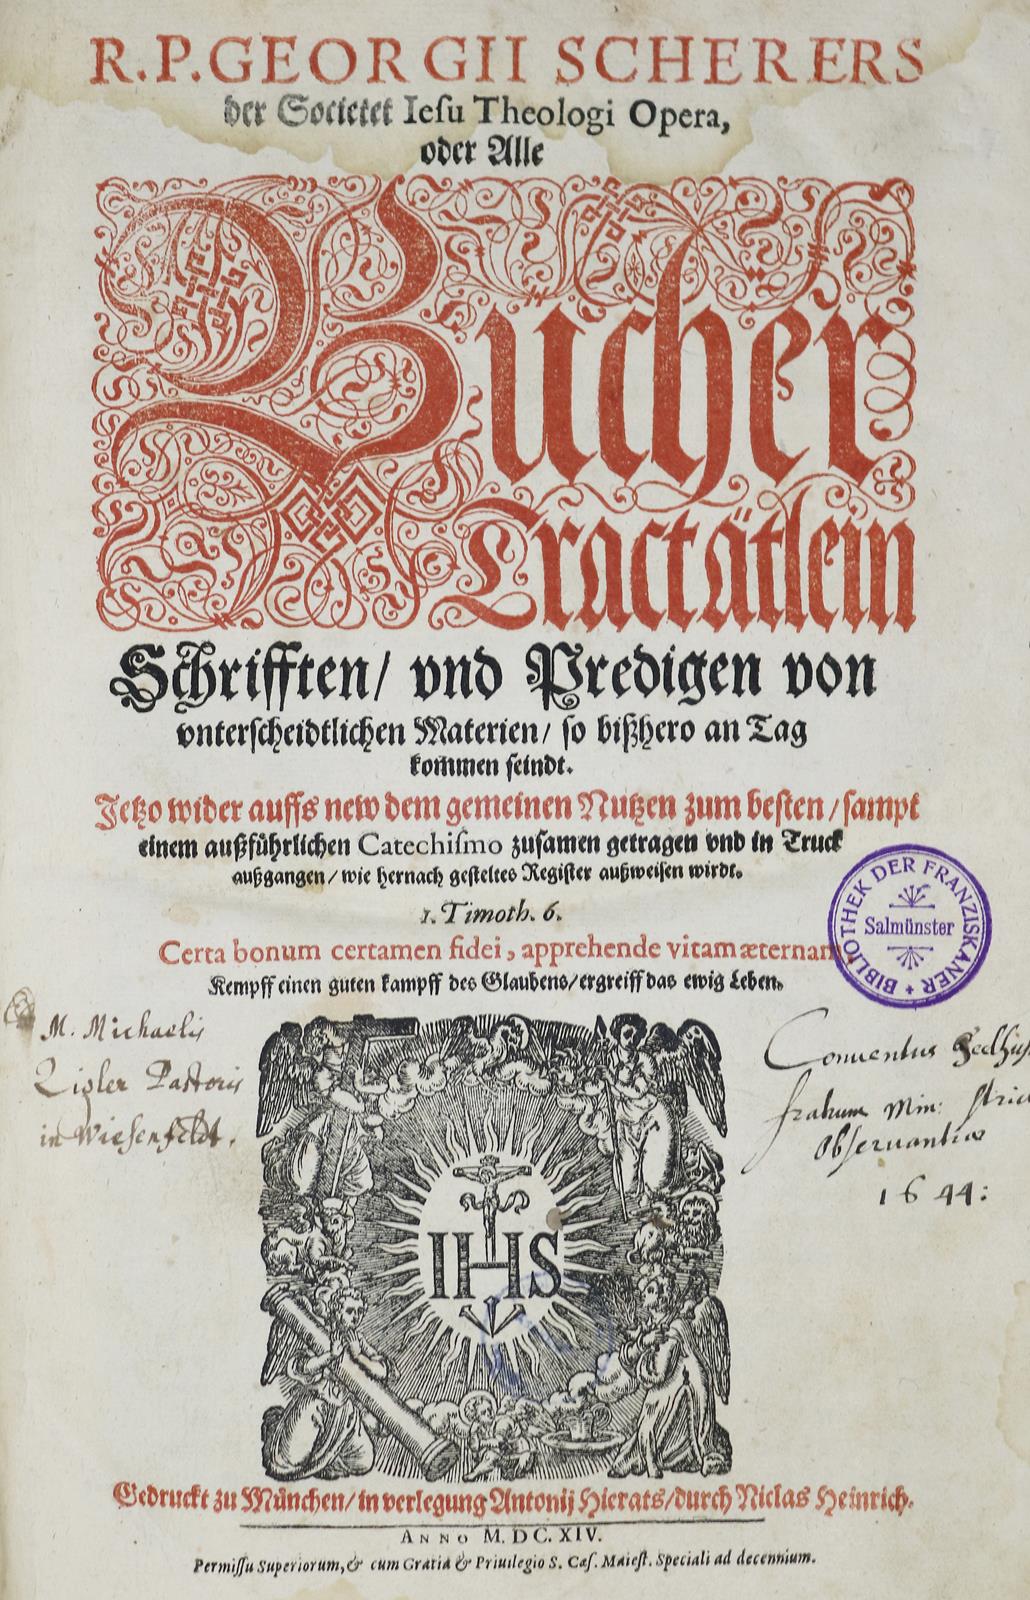 R.P.GEORGII SCHERERS
der Societet Iesu Theologi Opera,
oder Alle
Bücher
Tractätlein
Schrifften/ vnd Predigen von
vnterscheidtlichen Materien/ so bißhero an Tag
kommen seindt.
Jetzo wider auffs new dem gemeinen Nutzen zum besten/ sampt
einem außführlichen Catechismo zusamen getragen vnd in Truck
außgangen/ wie hernach gesteltes Register außweisen wirdt.
1. Timoth. 6.
Certa bonum certamen fidei, apprehende vitam æternam
Kempff einen guten kampff des Glaubens/ ergreiff das ewig Leben.
BIBLIOTHEK DER FRANZISKANER
Salmünster
M. Michaelis
Zigler Pastoris
in Wiesenfeldt.
Conuentus
fratrum Min:
Obseruantiæ
1644:
IHS
Gedruckt zu München/ in verlegung Antonij Hierats/ durch Niclas Heinrich.
ANNO M. DC. XIV.
Permissu Superiorum, & cum Gratia & Priuilegio S. Cæs. Maiest. Speciali ad decennium.